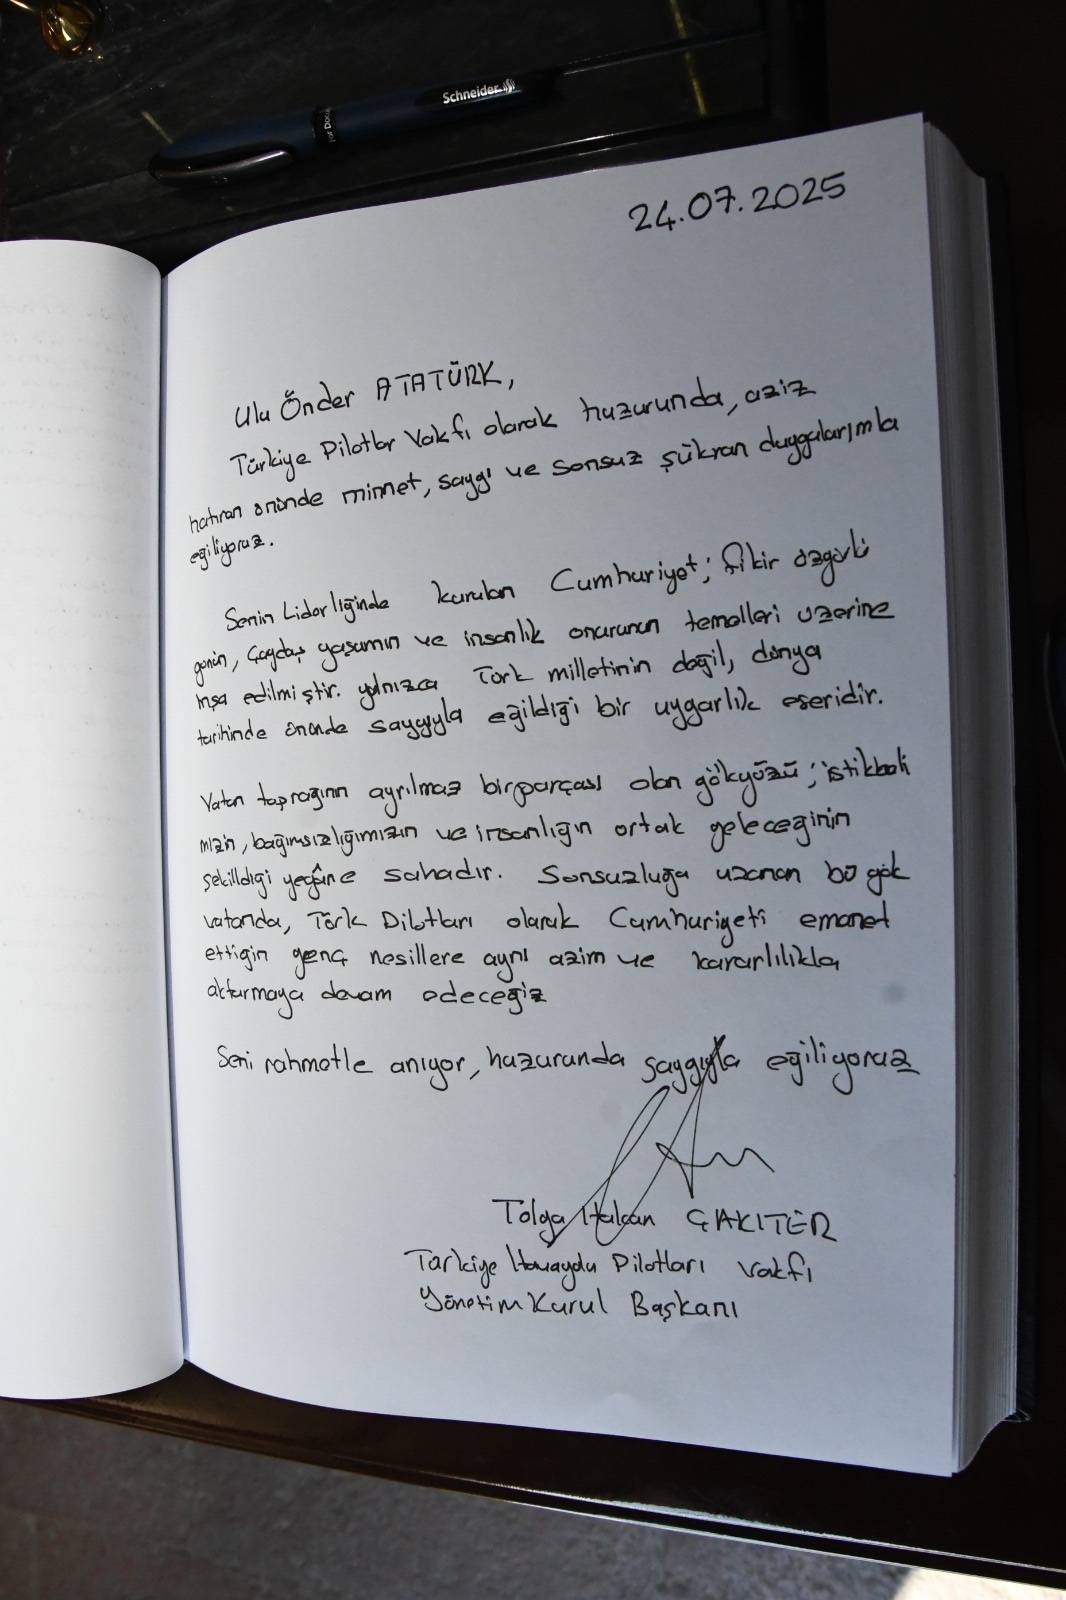 Schneider
for Docu
24.07.2025
Ulu Önder ATATÜRK,
Türkiye Pilotlar Vakfı olarak huzurunda, aziz
hatıran önünde minnet, saygı ve sonsuz şükran duygularımla
eğiliyoruz.
Senin Liderliğinde kurulan Cumhuriyet; fikir özgürlü
günün, Çağdaş yaşamın ve insanlık onurunun temelleri üzerine
inşa edilmiştir. yalnızca Türk milletinin değil, dünya
tarihinde önünde saygıyla eğildiği bir uygarlık eseridir.
Vatan toprağının ayrılmaz bir parçası olan gökyüzü; istikbali
mizin, bağımsızlığımızın ve insanlığın ortak geleceğinin
şekilldiği yegâne sahadır. Sonsuzluğa uzanan bu gök
vatanda, Türk Pilotları olarak Cumhuriyeti emanet
ettiğin genç nesillere aynı azim ve kararlılıkla
aktarmaya devam edeceğiz
Seni rahmetle anıyor, huzurunda saygıyla eğiliyoruz
Tolga Hakan ÇAKITER
Türkiye Havayolu Pilotları Vakfı
Yönetim Kurul Başkanı